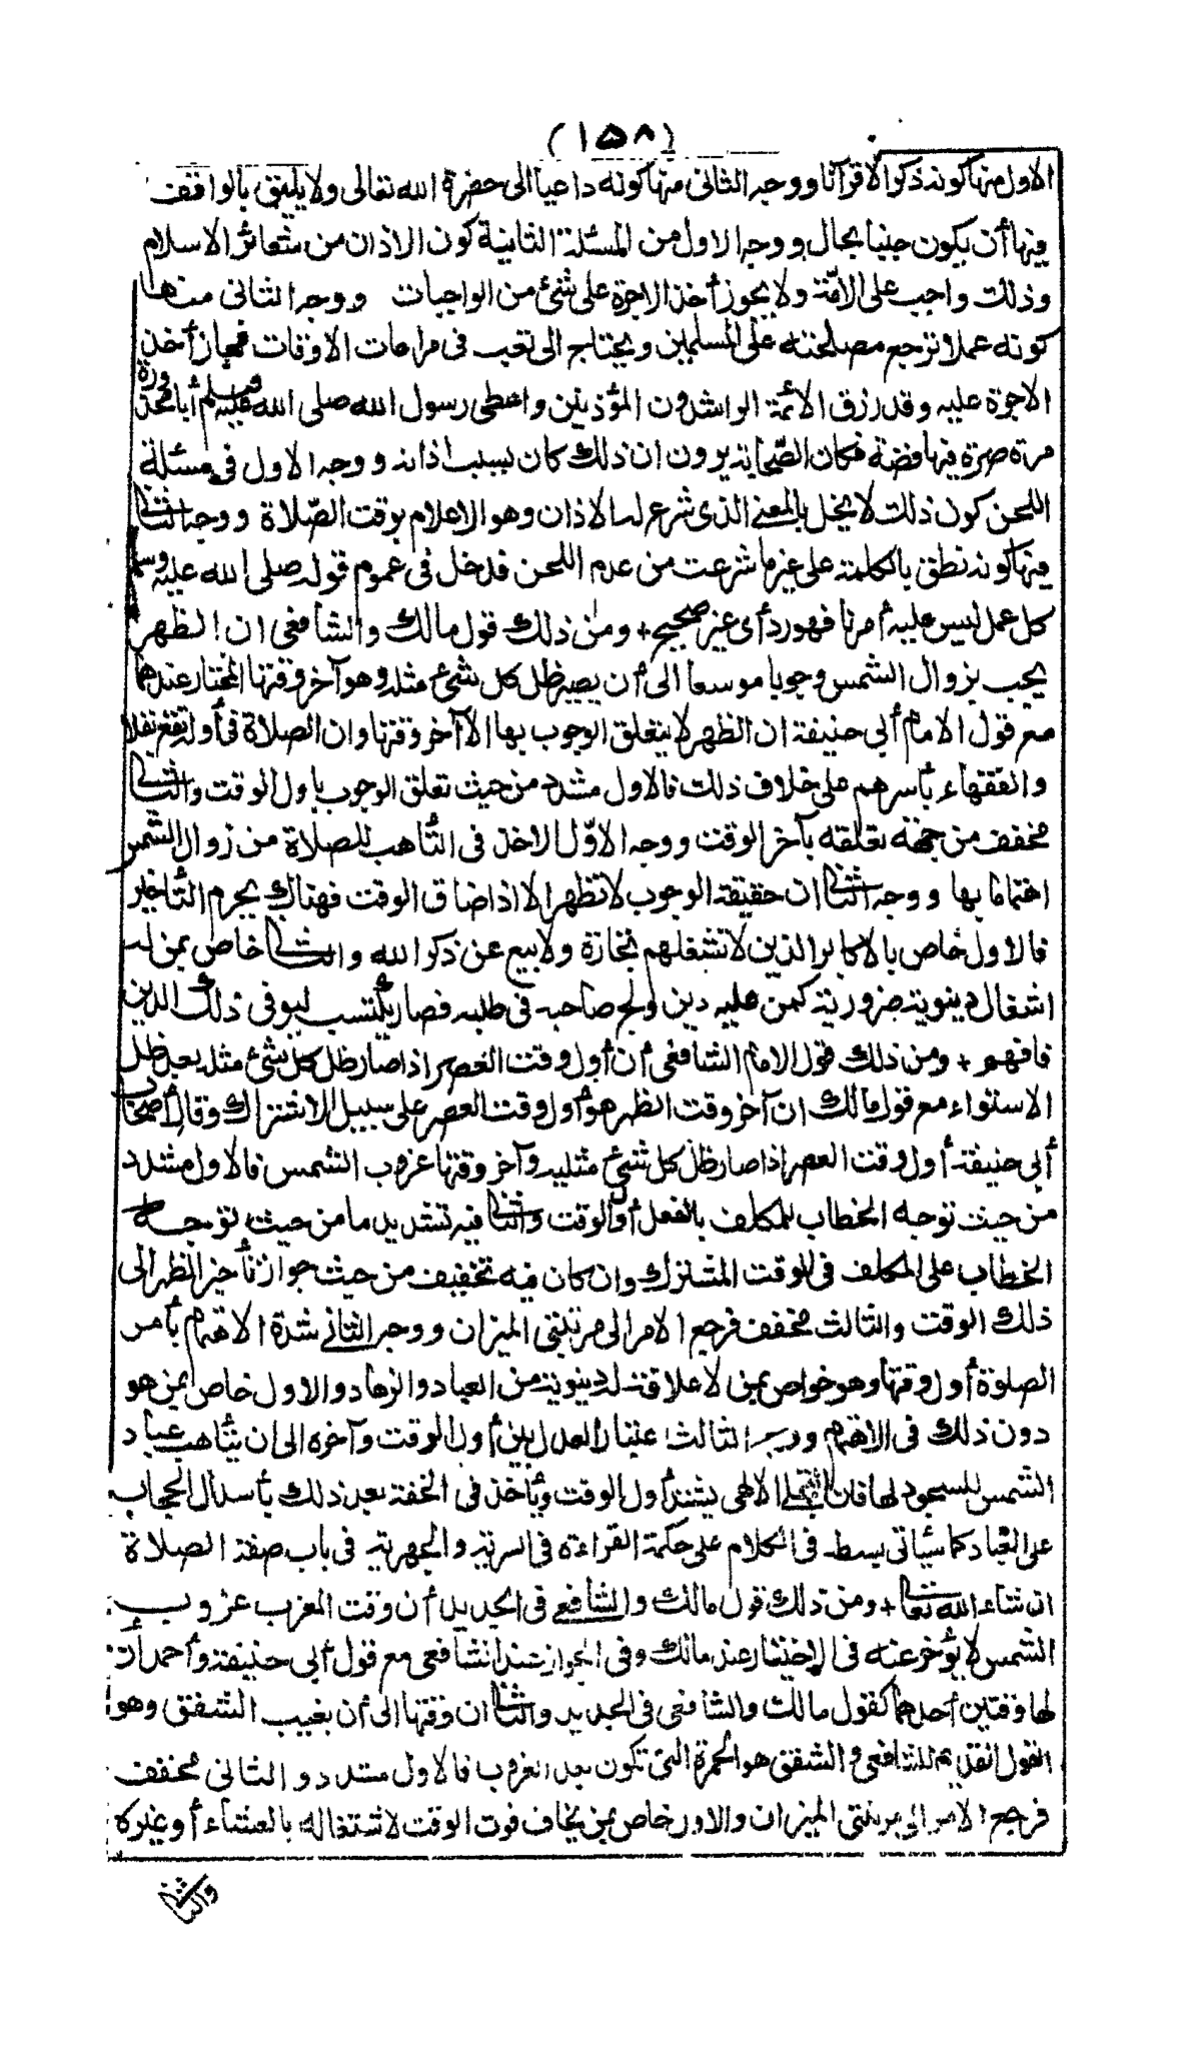 (١٥٨)
الاول منها كونه ذكرا لا قرآنا ووجه الثانى منها كونه داعيا الى حضرة الله تعالى ولا يليق بالواقف
فيها أن يكون جنبا بحال ووجه الاول من المسئلة الثانية كون الاذان من شعائر الاسلام
وذلك واجب على الامّة ولا يجوز أخذ الاجرة على شئ من الواجبات ووجه الثانى منها
كونه عملا ترجع مصلحته على المسلمين ويحتاج الى تعب فى مراعات الاوقات فجاز أخذ
الاجرة عليه وقد رزق الأئمة الراشدون المؤذنين واعطى رسول الله صلى الله عليه وسلم أبا محذورة
مرة صرة فيها فضة فكان الصّحابة يرون ان ذلك كان بسبب اذانه ووجه الاول فى مسئلة
اللحن كون ذلك لا يخل بالمعنى الذى شرع له الاذان وهو الاعلام بوقت الصّلاة ووجه الثانى
فيها كونه نطق بالكلمة على غير ما شرعت من عدم اللحن فدخل فى عموم قوله صلى الله عليه وسلم
كل عمل ليس عليه أمرنا فهو رد أى غير صحيح + ومن ذلك قول مالك والشافعى ان الظهر
يجب بزوال الشمس وجوبا موسعا الى أن يصير ظل كل شئ مثله وهو آخر وقتها المختار عندهما
مع قول الامام أبي حنيفة ان الظهر لا يتعلق الوجوب بها الا آخر وقتها وان الصلاة فى أوله تقع نفلا
والفقهاء بأسرهم على خلاف ذلك فالاول مشدد من حيث تعلق الوجوب باول الوقت والثانى
مخفف من جهة تعلقه بآخر الوقت ووجه الاوّل الاخذ فى التأهب للصلاة من زوال الشمس
اهتماما بها ووجه الثانى ان حقيقة الوجوب لا تظهر الا اذا ضاق الوقت فهناك يحرم التأخير
فالاول خاص بالاكابر الذين لا تشغلهم تجارة ولا بيع عن ذكر الله والثانى خاص بمن له
اشغال دينوية ضرورية كمن عليه دين ولج صاحبه فى طلبه فصار يكتسب ليوفى ذلك الدين
فافهم + ومن ذلك قول الامام الشافعى أن أول وقت العصر اذا صار ظل كل شئ مثله بعد ظل
الاستواء مع قول مالك ان آخر وقت الظهر هو أول وقت العصر على سبيل الاشتراك وقال أصحاب
أبى حنيفة أول وقت العصر اذا صار ظل كل شئ مثليه وآخر وقتها غروب الشمس فالاول مشدد
من حيث توجه الخطاب للمكلف بالفعل أول الوقت والثانى فيه تشديد ما من حيث توجه
الخطاب على المكلف فى الوقت المشترك وان كان فيه تخفيف من حيث جواز تأخير الظهر الى
ذلك الوقت والثالث مخفف فرجع الامر الى مرتبتى الميزان ووجه الثانى شدة الاهتمام بأمر
الصلوة أول وقتها وهو خواص بمن لا علاقة له دينوية من العباد والزهاد والاول خاص بمن هو
دون ذلك فى الاهتمام ووجه الثالث اعتبار العدل بين أول الوقت وآخره الى ان يتأهب عباد
الشمس للسجود لها فان التجلى الالهى يشتد أول الوقت ويأخذ فى الخفة بعد ذلك بأسدال الحجاب
على العباد كما سيأتى بسطه فى الكلام على حكمة القراءة فى السرية والجهرية فى باب صفة الصلاة
ان شاء الله تعالى + ومن ذلك قول مالك والشافعى فى الجديد أن وقت المغرب غروب
الشمس لا يؤخر عنه فى الاختيار عند مالك وفى الجواز عند الشافعى مع قول أبى حنيفة وأحمد أن
لها وقتين أحدهما كقول مالك والشافعى فى الجديد والثانى ان وقتها الى أن يغيب الشفق وهو
القول القديم للشافعى والشفق هو الحمرة التى تكون بعد الغروب فالاول مشدد والثانى مخفف
فرجع الامر الى مرتبتى الميزان والاول خاص بمن يخاف فوت الوقت لاشتغاله بالعشاء أو غيره
والثانى